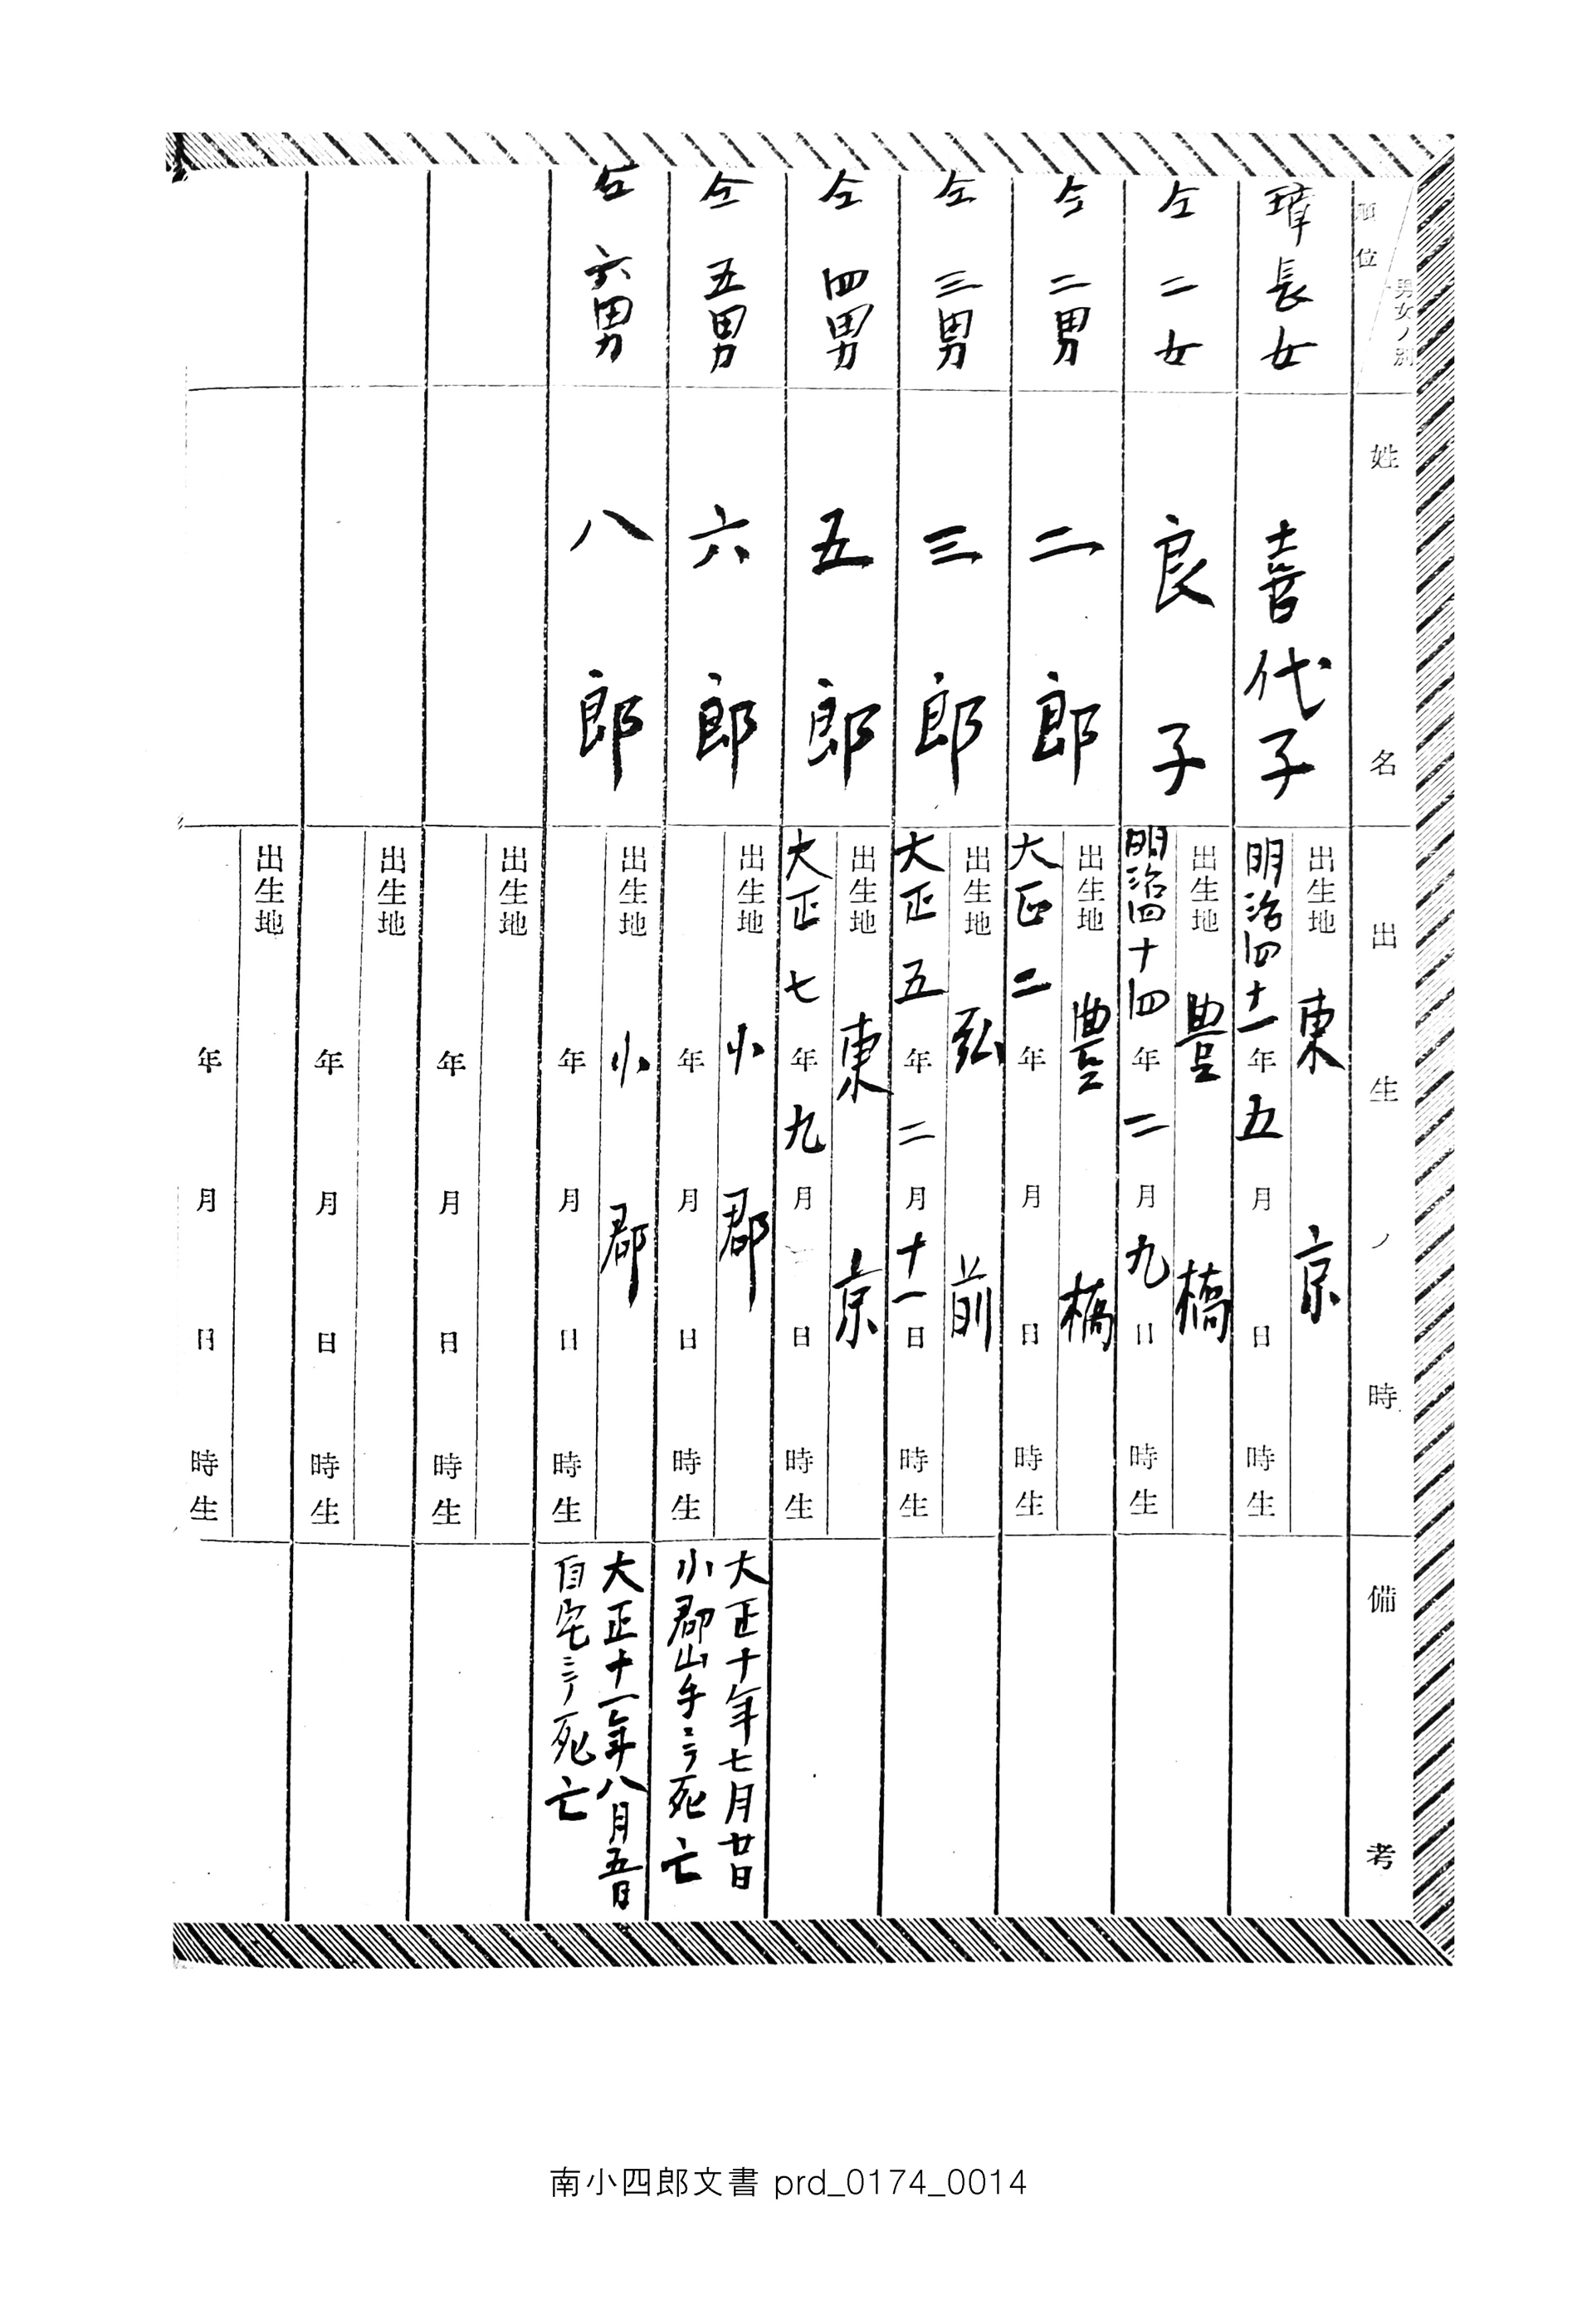 順位 男女ノ別
姓名
出生ノ時
備考
瑋長女
喜代子
出生地 東京
明治四十一年五月 日 時生
仝二女
良子
出生地 豊橋
明治四十四年二月九日 時生
仝二男
二郎
出生地 豊橋
大正二年 月 日 時生
仝三男
三郎
出生地 弘前
大正五年二月十一日 時生
仝四男
五郎
出生地 東京
大正七年九月 日 時生
仝五男
六郎
出生地 小郡
年 月 日 時生
大正十年七月廿日
小郡山手ニテ死亡
仝六男
八郎
出生地 小郡
年 月 日 時生
大正十一年八月五日
自宅ニテ死亡
出生地
年 月 日 時生
出生地
年 月 日 時生
出生地
年 月 日 時生
南小四郎文書 prd_0174_0014